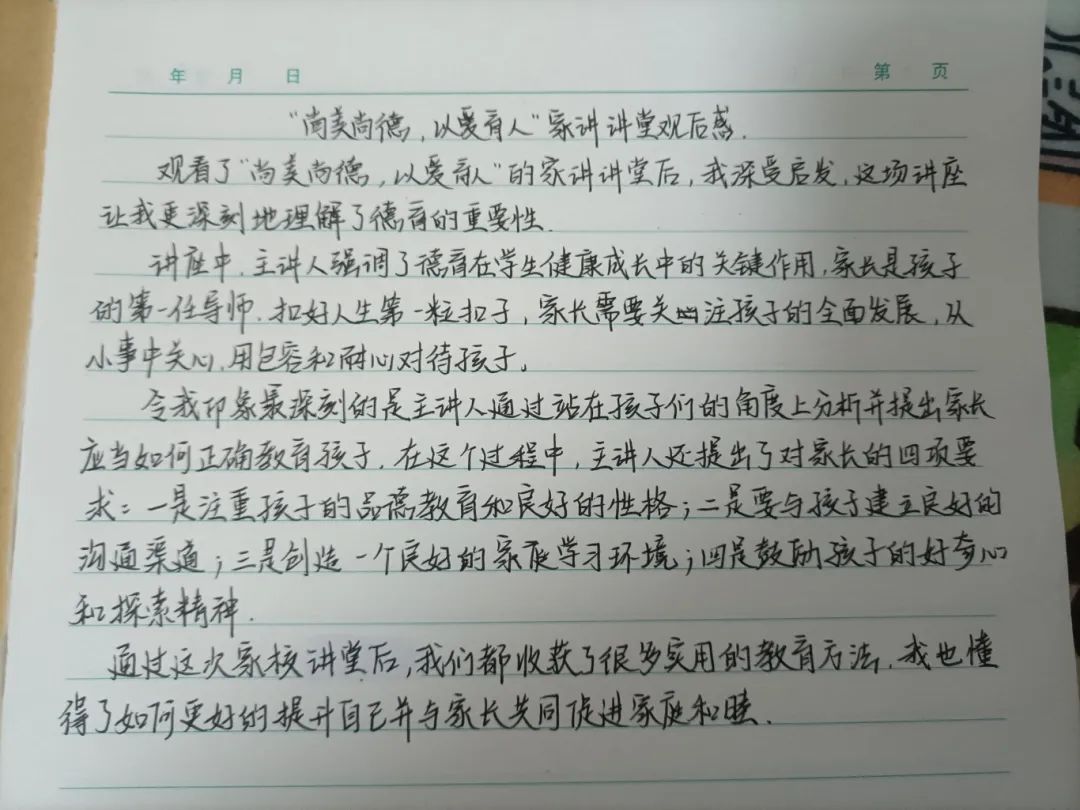 年 月 日 第 页
“尚美尚德，以爱育人”家讲讲堂观后感.
观看了“尚美尚德，以爱育人”的家讲讲堂后，我深受启发，这项讲座
让我更深刻地理解了德育的重要性.
讲座中，主讲人强调了德育在学生健康成长中的关键作用，家长是孩子
的第一任导师.扣好人生第一粒扣子，家长需要关注孩子的全面发展，从
小事中关心，用包容和耐心对待孩子。
令我印象最深刻的是主讲人通过站在孩子们的角度上分析并提出家长
应当如何正确教育孩子.在这个过程中，主讲人还提出了对家长的四项要
求：一是注重孩子的品德教育和良好的性格；二是要与孩子建立良好的
沟通渠道；三是创造一个良好的家庭学习环境；四是鼓励孩子的好奇心
和探索精神.
通过这次家校讲堂后，我们都收获了很多实用的教育方法，我也懂
得了如何更好的提升自己并与家长共同促进家庭和睦.